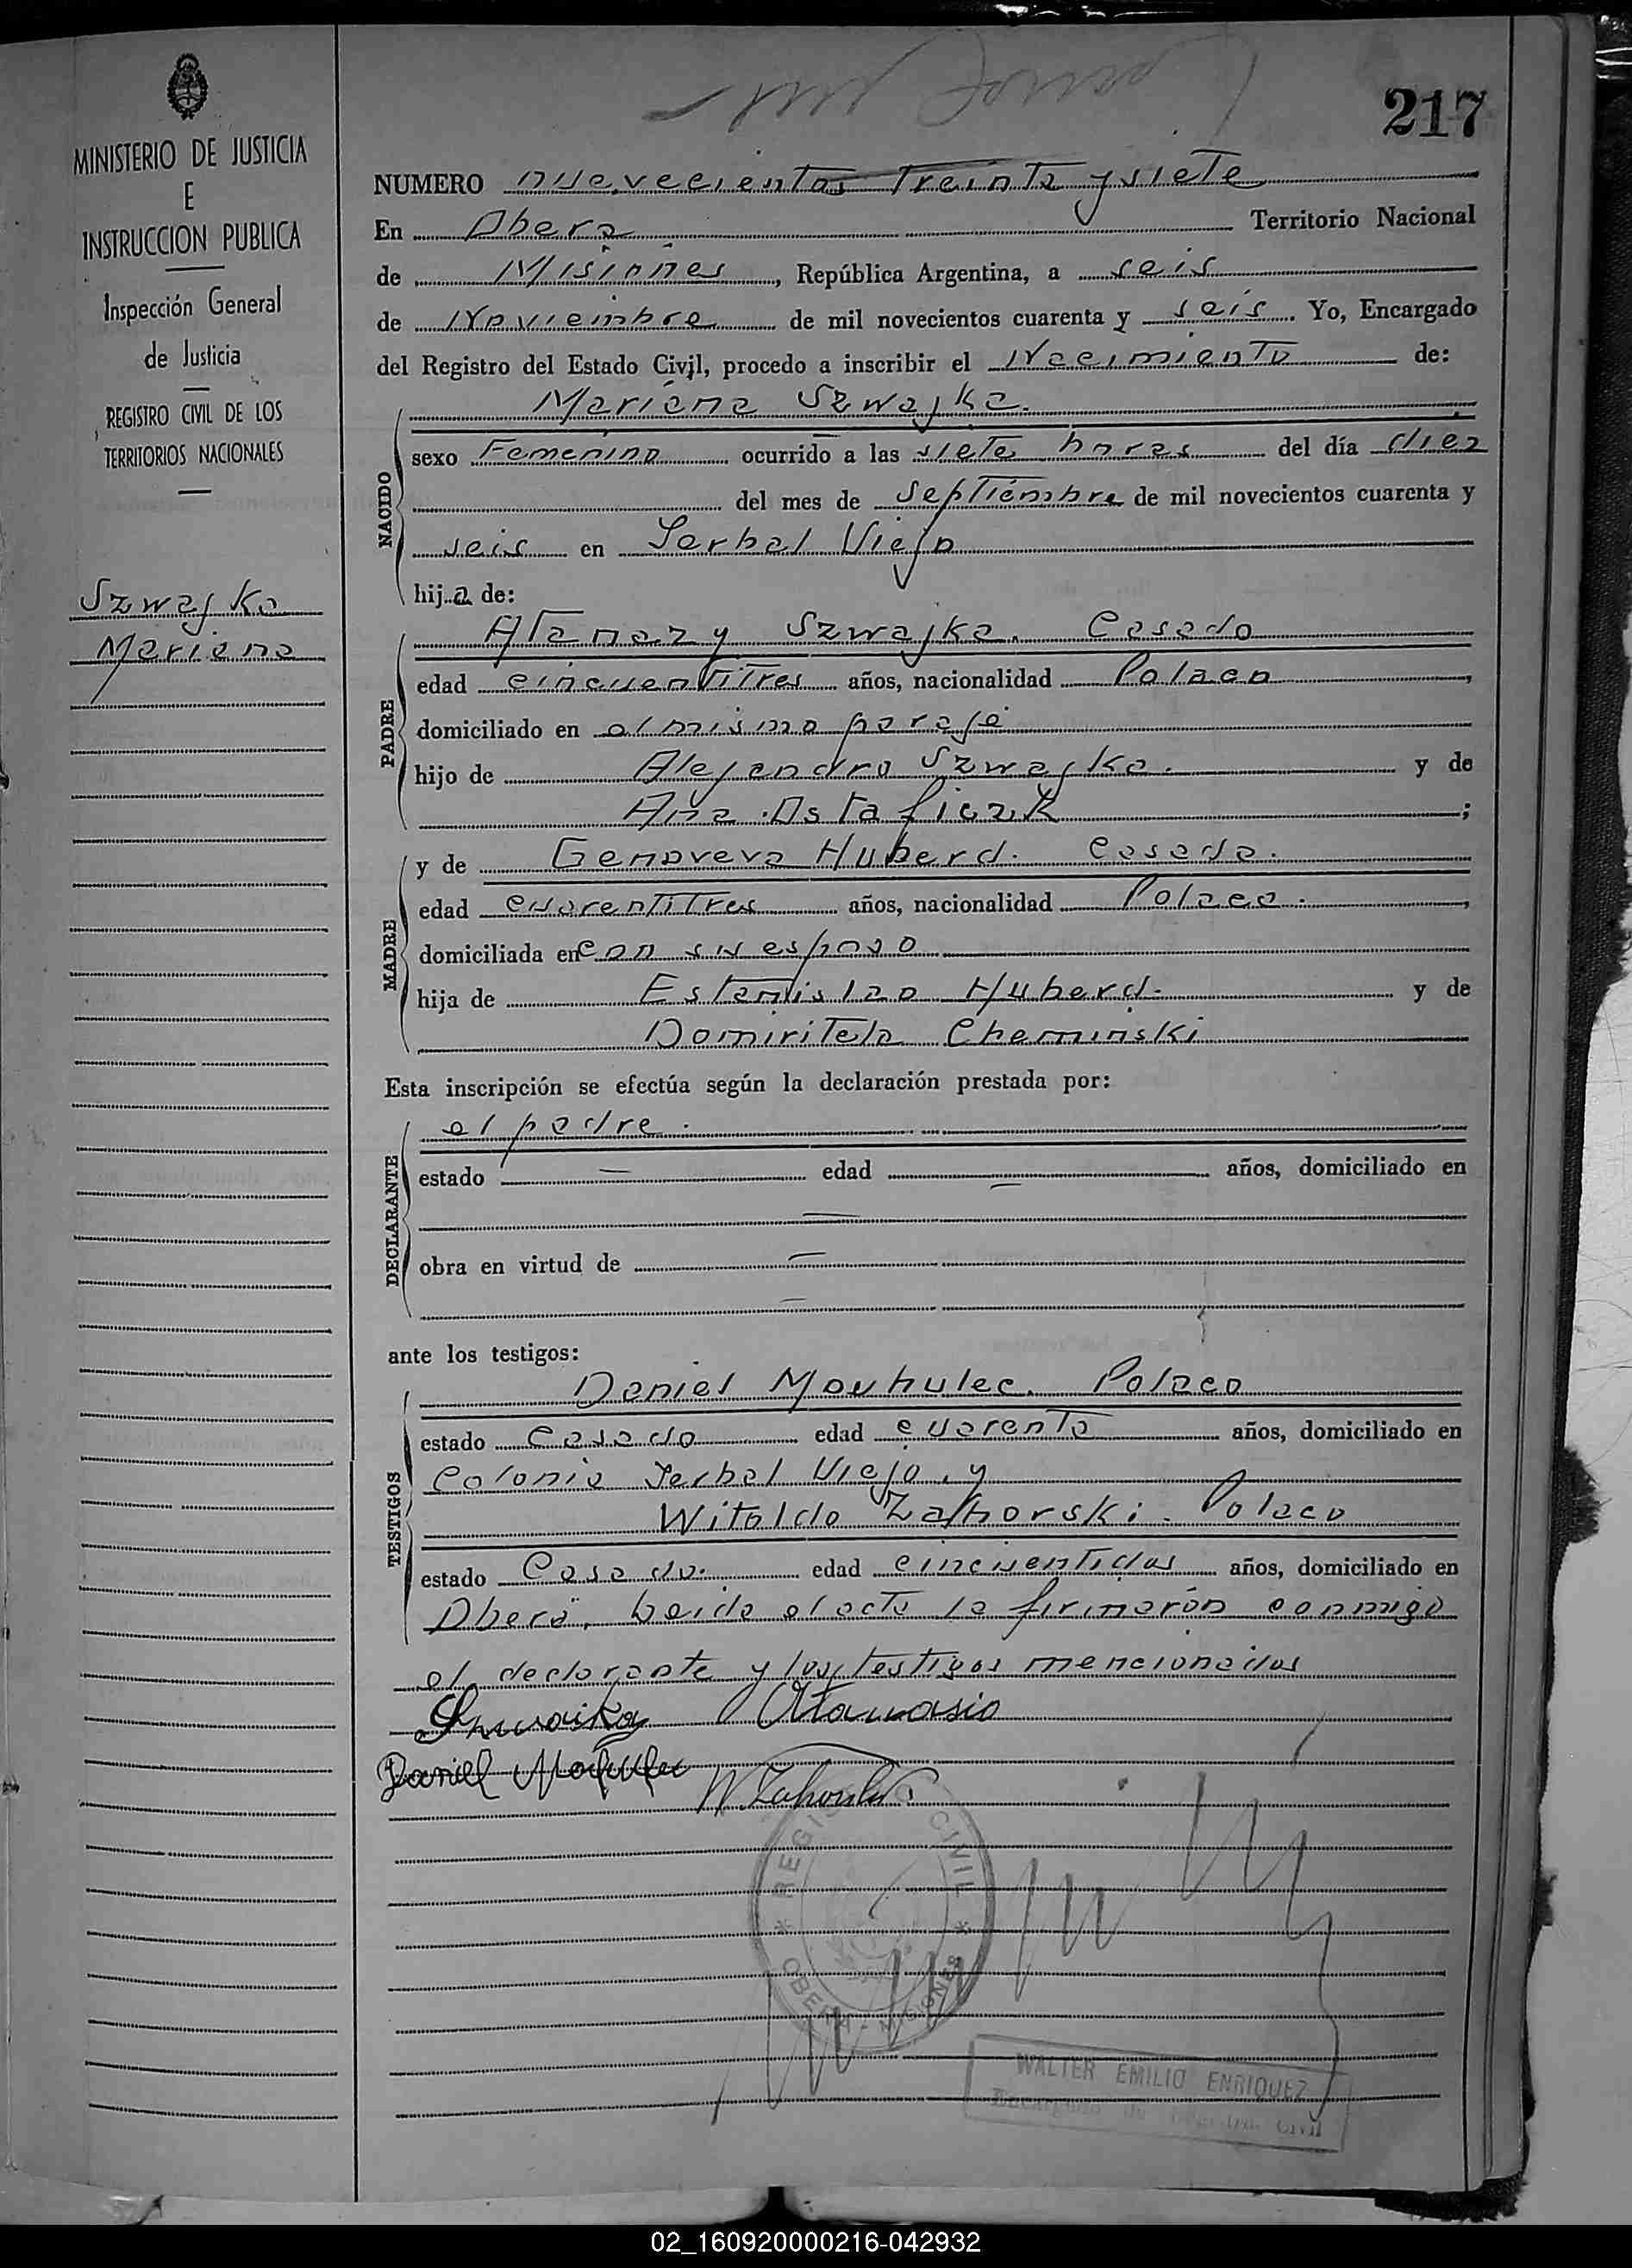 217
MINISTERIO DE JUSTICIA
E
INSTRUCCION PUBLICA
Inspección General
de Justicia
REGISTRO CIVIL DE LOS
TERRITORIOS NACIONALES
Szwajka
Mariana
NUMERO nuevecientos Treinta y siete
En Obera Territorio Nacional
de Misiones, República Argentina, a seis
de Noviembre de mil novecientos cuarenta y seis. Yo, Encargado
del Registro del Estado Civil, procedo a inscribir el Nacimiento de:
Mariana Szwajka.
NACIDO
sexo Femenino ocurrido a las siete horas del día diez
del mes de Septiembre de mil novecientos cuarenta y
seis en Yerbal Viejo
hija de:
PADRE
Atanazy Szwajka. Casado
edad cincuentitres años, nacionalidad Polaco,
domiciliado en el mismo paraje
hijo de Alejandro Szwajka. y de
Ana Ostaficzk;
MADRE
y de Genoveva Huberd. Casada.
edad cuarentitres años, nacionalidad Polaca.,
domiciliada en con su esposo
hija de Estanislao Huberd. y de
Domiritela Cheminski
Esta inscripción se efectúa según la declaración prestada por:
DECLARANTE
el padre.
estado — edad — años, domiciliado en
—
obra en virtud de —
—
ante los testigos:
TESTIGOS
Daniel Mouhulec. Polaco
estado Casado edad cuarenta años, domiciliado en
Colonia Yerbal Viejo, y
Witoldo Zahorski. Polaco
estado Casado. edad cincuentidos años, domiciliado en
Obera, Leida el acta la firmarón conmigo
el declarante y los testigos mencionados
Szwaika Atanasio
Daniel
W. Zahorski.
REGISTRO CIVIL * OBERA - MISIONES *
WALTER EMILIO ENRIQUEZ
Encargado de Registro Civil
02_160920000216-042932